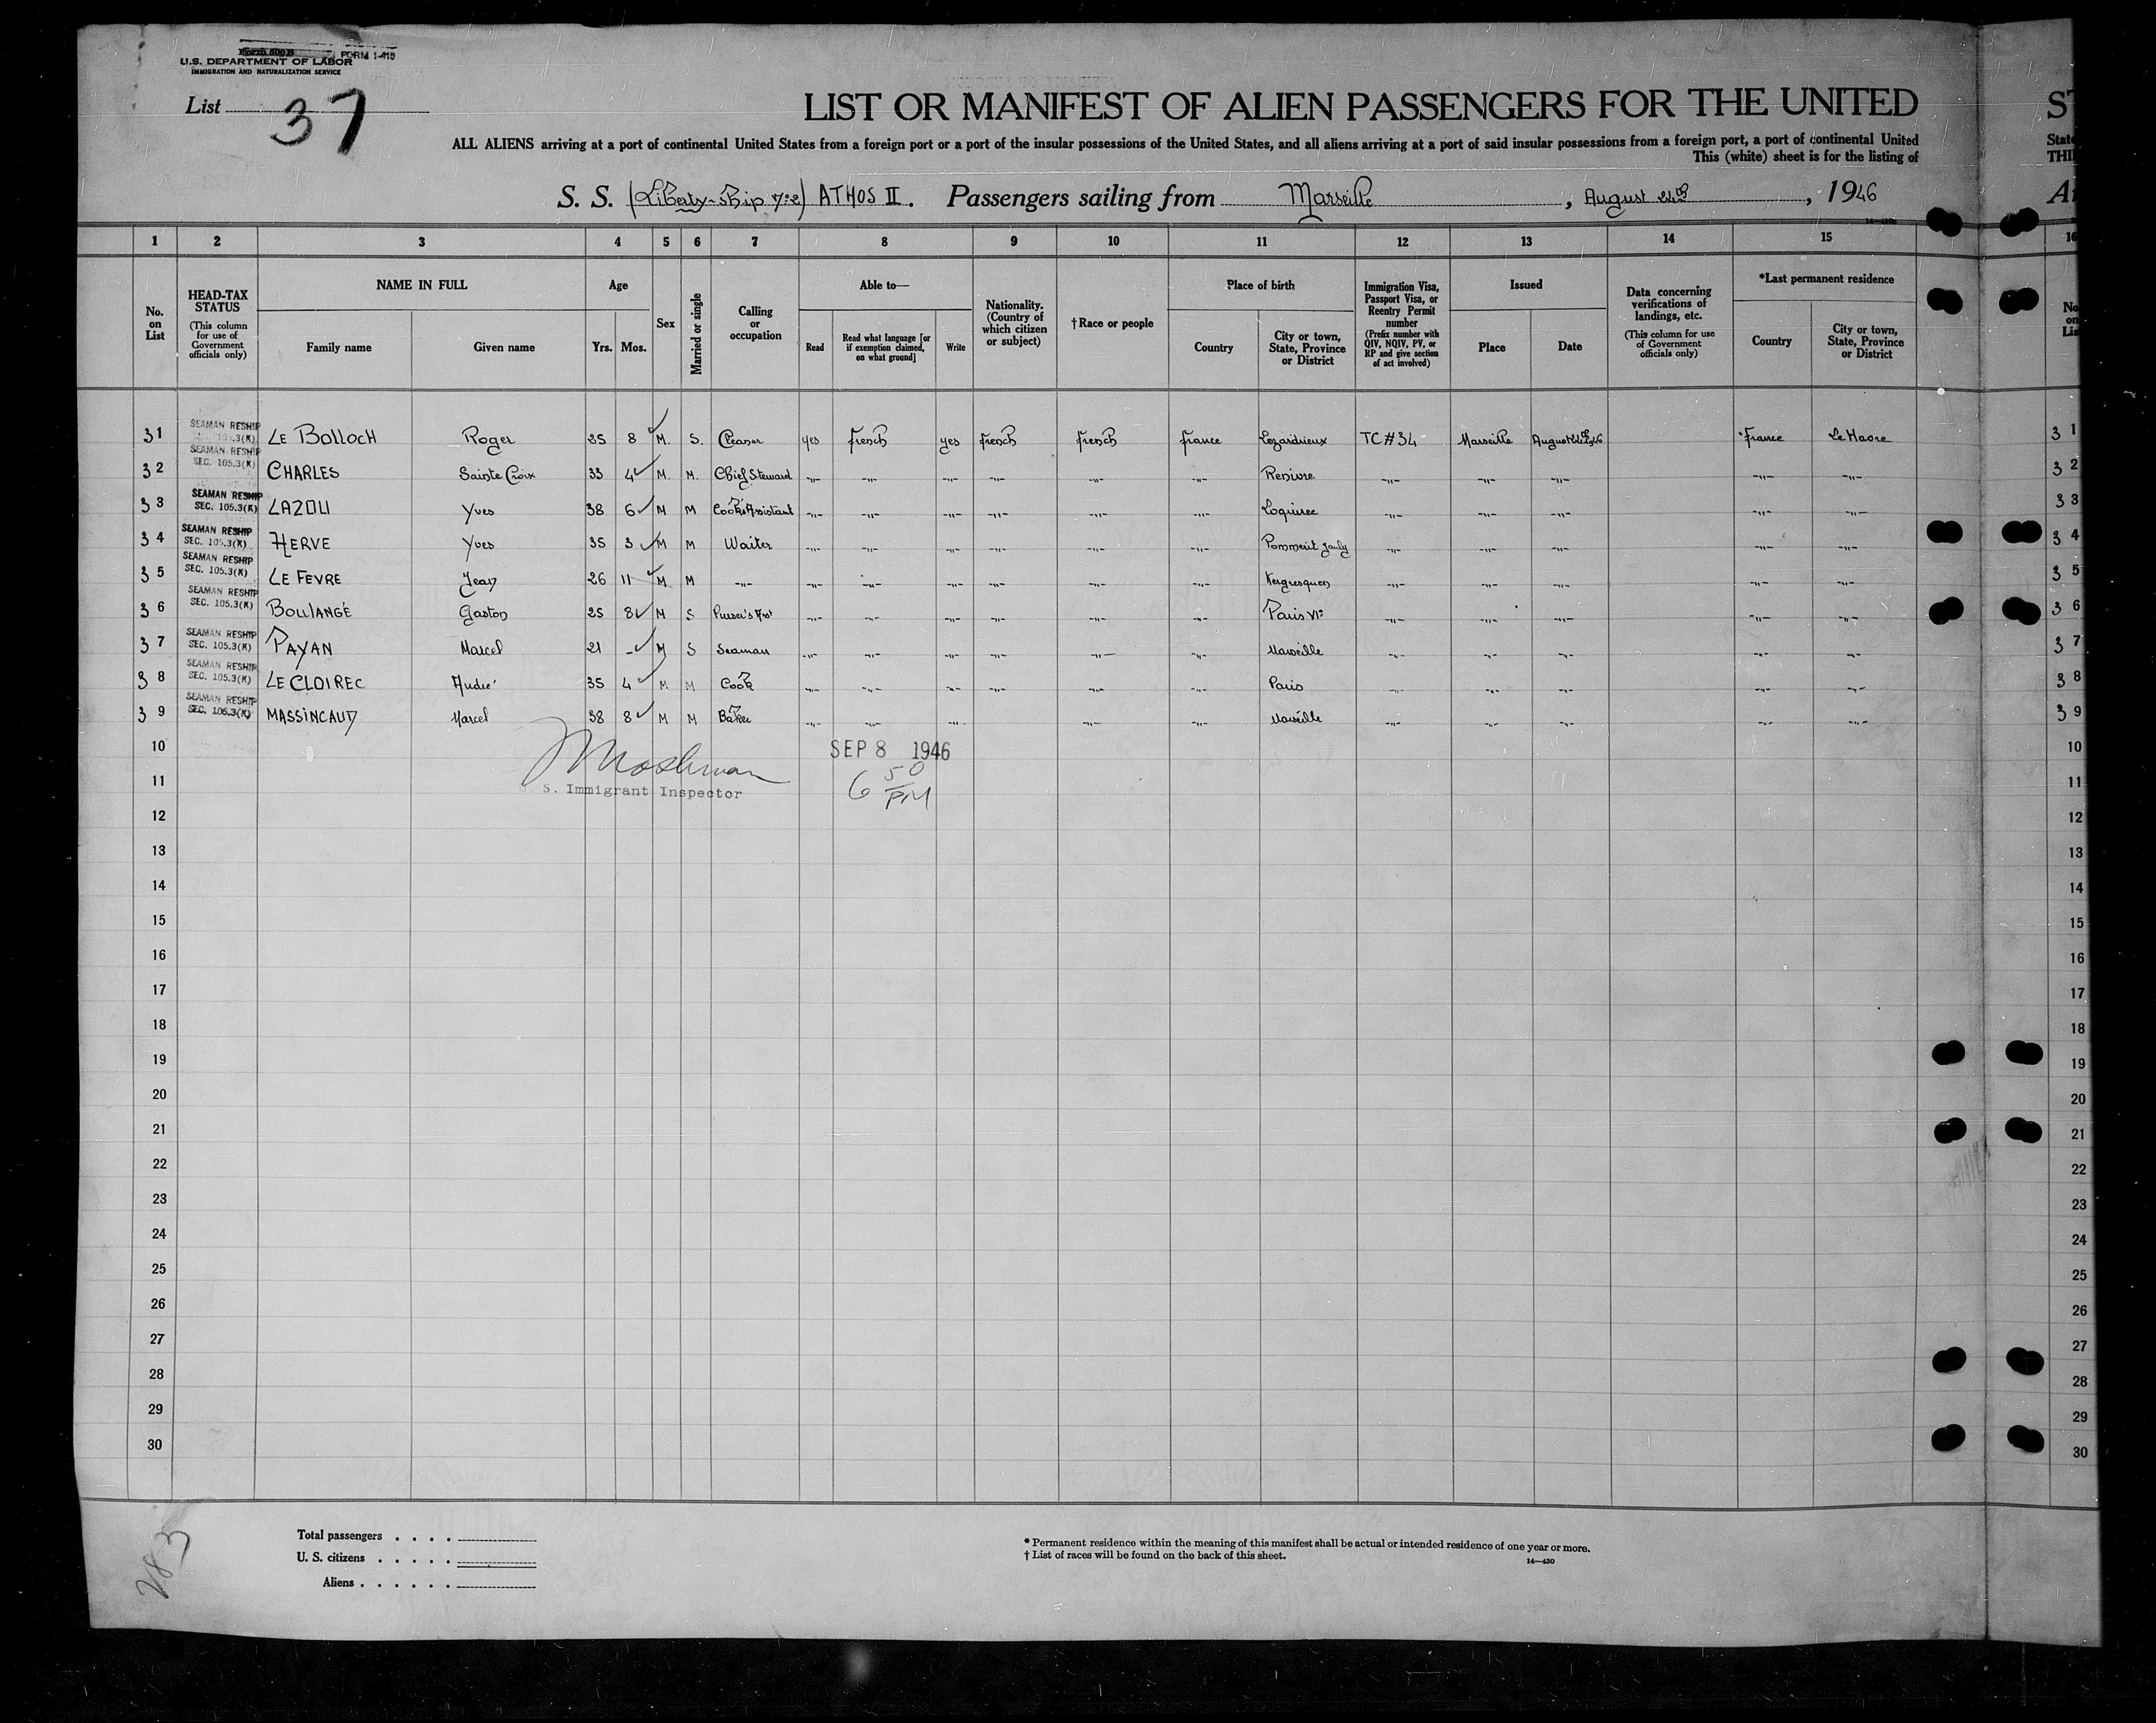 Form 500B FORM I-415
U.S. DEPARTMENT OF LABOR
IMMIGRATION AND NATURALIZATION SERVICE
List 37
LIST OR MANIFEST OF ALIEN PASSENGERS FOR THE UNITED ST
ALL ALIENS arriving at a port of continental United States from a foreign port or a port of the insular possessions of the United States, and all aliens arriving at a port of said insular possessions from a foreign port, a port of continental United State
This (white) sheet is for the listing of THI
S. S. (Liberty-ship 7:2) ATHOS II. Passengers sailing from Marseille, August 24th, 1946
1 2 3 4 5 6 7 8 9 10 11 12 13 14 15 16
No. on List
HEAD-TAX STATUS (This column for use of Government officials only)
NAME IN FULL
Family name
Given name
Age
Yrs. Mos.
Sex
Married or single
Calling or occupation
Able to—
Read
Read what language [or if exemption claimed, on what ground]
Write
Nationality. (Country of which citizen or subject)
†Race or people
Place of birth
Country
City or town, State, Province or District
Immigration Visa, Passport Visa, or Reentry Permit number (Prefix number with QIV, NQIV, PV, or RP and give section of act involved)
Issued
Place
Date
Data concerning verifications of landings, etc. (This column for use of Government officials only)
*Last permanent residence
Country
City or town, State, Province or District
31 SEAMAN RESHIP 105.3(K) LE BOLLOCH Roger 25 8 M. S. Cleaner yes french yes french french france Lezardrieux TC #34 Marseille August 24th 46 France Le Havre 31
32 SEAMAN RESHIP SEC. 105.3(K) CHARLES Sainte Croix 33 4 M. M. Chief Steward -"- -"- -"- -"- -"- -"- -"- -"- -"- -"- -"- 32
33 SEAMAN RESHIP SEC. 105.3(K) LAZOU Yves 38 6 M M Cook's Assistant -"- -"- -"- -"- -"- -"- Loquirec -"- -"- -"- -"- -"- 33
34 SEAMAN RESHIP SEC. 105.3(K) HERVE Yves 35 3 M M Waiter -"- -"- -"- -"- -"- -"- Pommerit Jaudy -"- -"- -"- -"- -"- 34
35 SEAMAN RESHIP SEC. 105.3(K) LE FEVRE Jean 26 11 M M -"- -"- -"- -"- -"- -"- -"- -"- -"- -"- -"- -"- 35
36 SEAMAN RESHIP SEC. 105.3(K) BOULANGÉ Gaston 25 8 M S Purser's Asst -"- -"- -"- -"- -"- -"- Paris VIe -"- -"- -"- -"- -"- 36
37 SEAMAN RESHIP SEC. 105.3(K) PAYAN Marcel 21 - M S Seaman -"- -"- -"- -"- -"- -"- Marseille -"- -"- -"- -"- -"- 37
38 SEAMAN RESHIP SEC. 105.3(K) LE CLOIREC André 35 4 M M Cook -"- -"- -"- -"- -"- -"- Paris -"- -"- -"- -"- -"- 38
39 SEAMAN RESHIP SEC. 105.3(K) MASSINCAUD Marcel 38 8 M M Baker -"- -"- -"- -"- -"- -"- Marseille -"- -"- -"- -"- -"- 39
10 SEP 8 1946 10
11 S. Immigrant Inspector 6 50 PM 11
12 12
13 13
14 14
15 15
16 16
17 17
18 18
19 19
20 20
21 21
22 22
23 23
24 24
25 25
26 26
27 27
28 28
29 29
30 30
283
Total passengers . . . .
U. S. citizens . . . . .
Aliens . . . . . .
* Permanent residence within the meaning of this manifest shall be actual or intended residence of one year or more.
† List of races will be found on the back of this sheet.
14—430